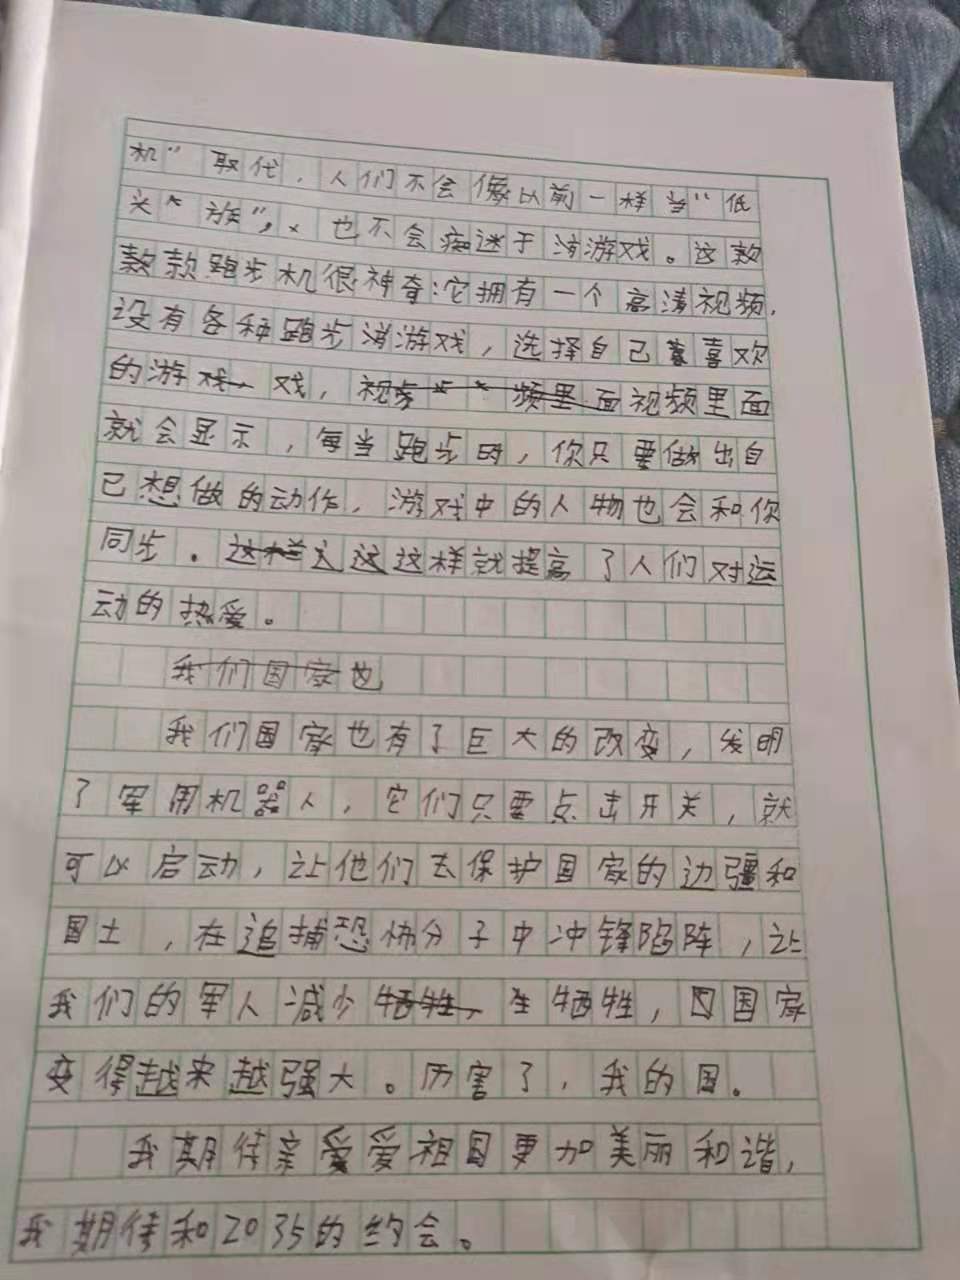 机”取代，人们不会像以前一样当“低
头“族”，也不会痴迷于游游戏。这款
款款跑步机很神奇：它拥有一个高清视频，
设有各种跑步游游戏，选择自己喜欢
的游戏，戏，视频里面视频里面
就会显示，每当跑步时，你只要做出自
己想做的动作，游戏中的人物也会和你
同步。这样这这样就提高了人们对运
动的热爱。
我们国家也
我们国家也有了巨大的改变，发明
了军用机器人，它们只要点击开关，就
可以启动，让他们去保护国家的边疆和
国土，在追捕恐怖分子中冲锋陷阵，让
我们的军人减少牺牲，牺牲，国家
变得越来越强大。厉害了，我的国。
我期待亲爱爱祖国更加美丽和谐，
我期待和2035的约会。